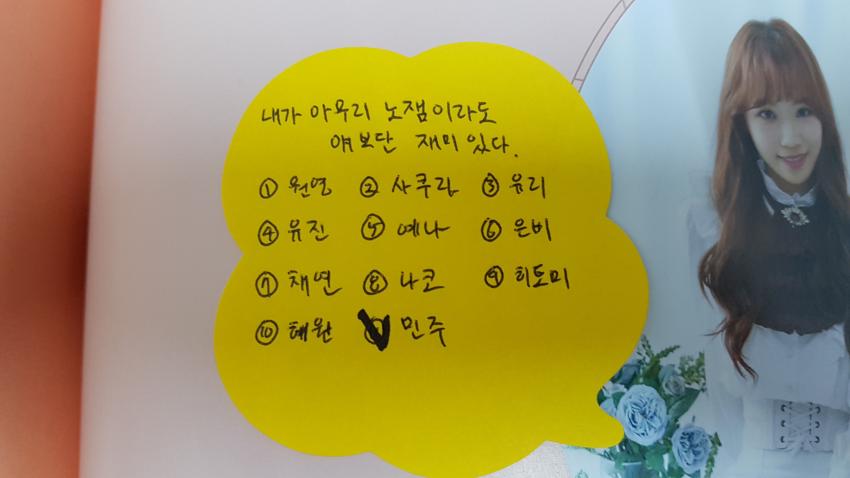 내가 아무리 노잼이라도
얘보단 재미 있다.
① 원영 ② 사쿠라 ③ 유리
④ 유진 ⑤ 예나 ⑥ 은비
⑦ 채연 ⑧ 나코 ⑨ 히토미
⑩ 혜원 민주